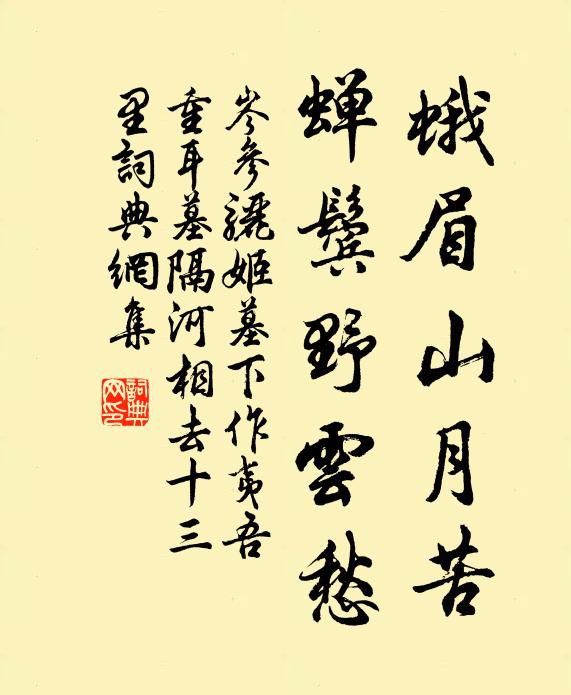 蛾眉山月苦
蝉鬓野雲愁
岑參驪姬墓下作夷吾
重耳墓隔河相去十三
里詞典網集
詞典
网印